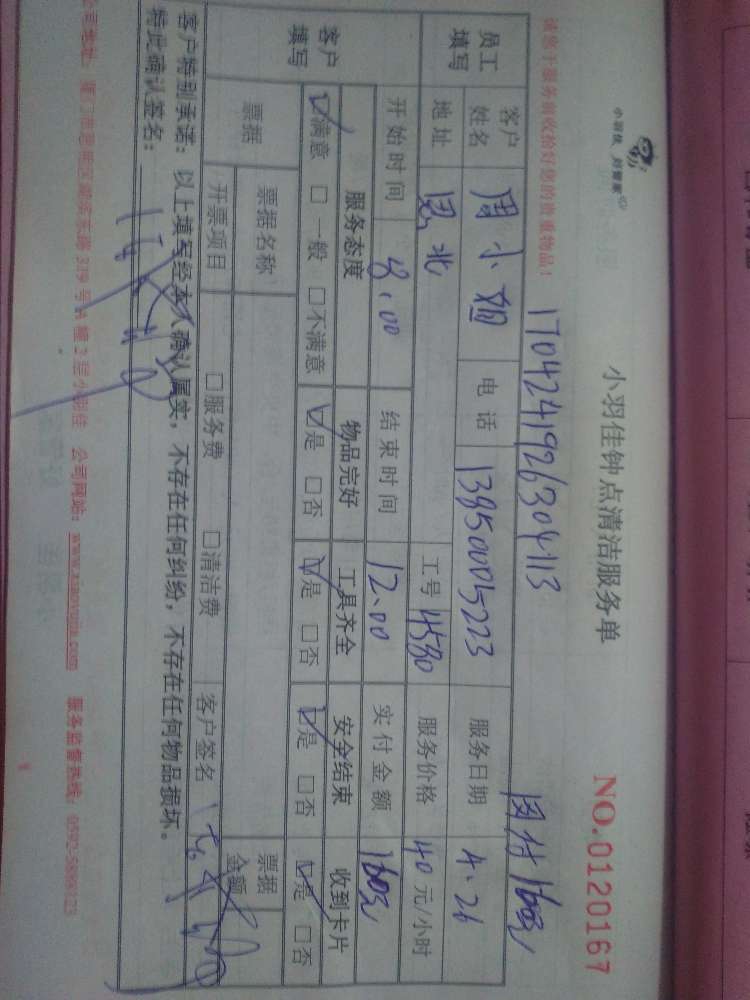 小羽佳钟点清洁服务单
NO.0120167
请您于服务前收拾好您的贵重物品！
170424192630413
员工填写
客户姓名 周小姐 电话 13950005223 服务日期 4.26
地址 工号 4580 服务价格 40元/小时
客户填写
开始时间 8:00 结束时间 12:00 实付金额 160元
服务态度 物品完好 工具齐全 安全结束 收到卡片
☑满意 □一般 □不满意 ☑是 □否 ☑是 □否 ☑是 □否 ☑是 □否
票据 票据名称 票据金额
开票项目 □服务费 □清洁费 客户签名
客户特别承诺：以上填写经本人确认属实，不存在任何纠纷，不存在任何物品损坏。
特此确认签名：
公司网站：www.xiaoyujia.com 服务监督热线：